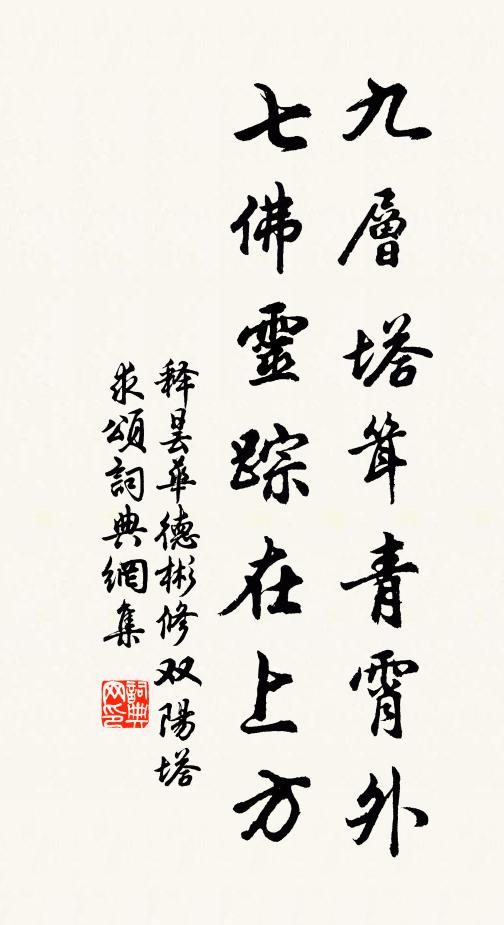 九層塔聳青霄外
七佛靈踪在上方
释曇華德彬修双陽塔
求頌詞典網集
詞典网印